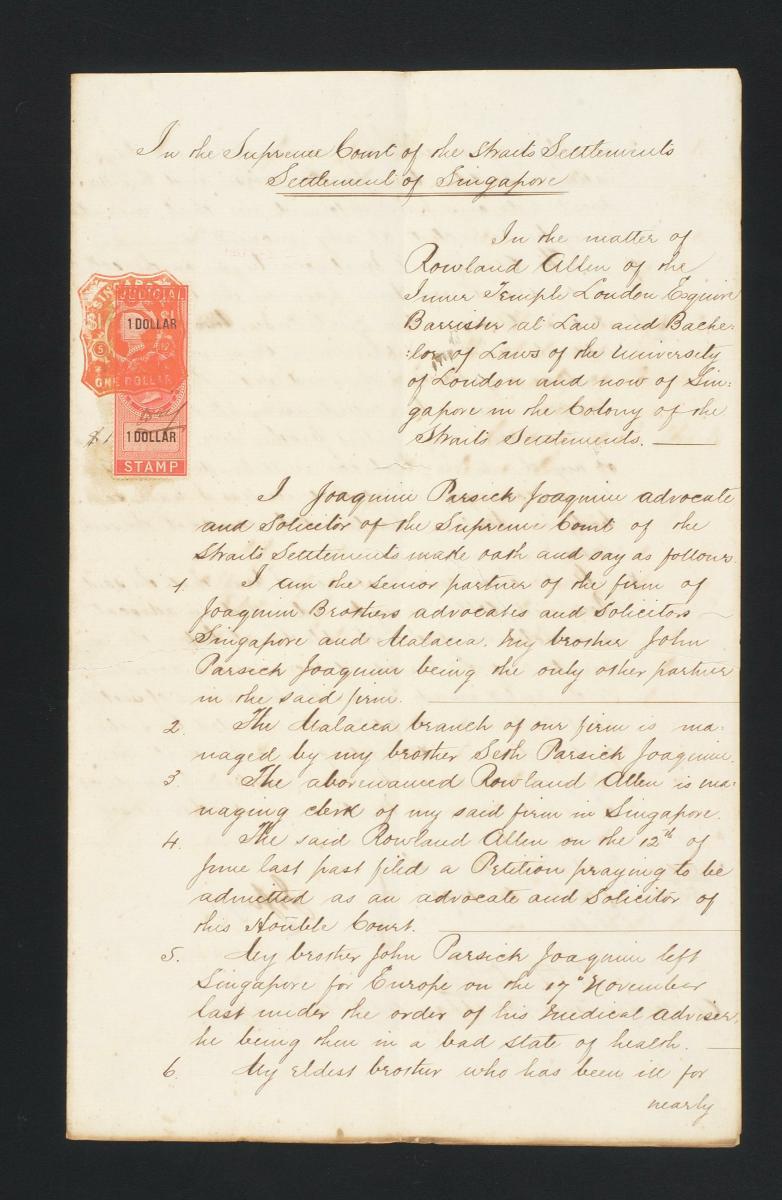 In the Supreme Court of the Straits Settlements
Settlement of Singapore
In the matter of
Rowland Allen of the
Inner Temple London Esquire
Barrister at Law and Bache:
:lor of Laws of the University
of London and now of Sin:
gapore in the Colony of the
Straits Settlements.
SINGAPORE
JUDICIAL
$1
$1
1 DOLLAR
5
ONE DOLLAR
$1
1 DOLLAR
STAMP
I Joaquim Parsick Joaquim advocate
and Solicitor of the Supreme Court of the
Straits Settlements make oath and say as follows.
1. I am the senior partner of the firm of
Joaquim Brothers advocates and Solicitors
Singapore and Malacca. My brother John
Parsick Joaquim being the only other partner
in the said firm.
2. The Malacca branch of our firm is ma:
naged by my brother Seth Parsick Joaquim.
3. The abovenamed Rowland Allen is ma:
naging clerk of my said firm in Singapore.
4. The said Rowland Allen on the 12th of
June last past filed a Petition praying to be
admitted as an advocate and Solicitor of
this Honble Court.
5. My brother John Parsick Joaquim left
Singapore for Europe on the 17th November
last under the order of his medical adviser,
he being then in a bad state of health.
6. My eldest brother who has been ill for
nearly